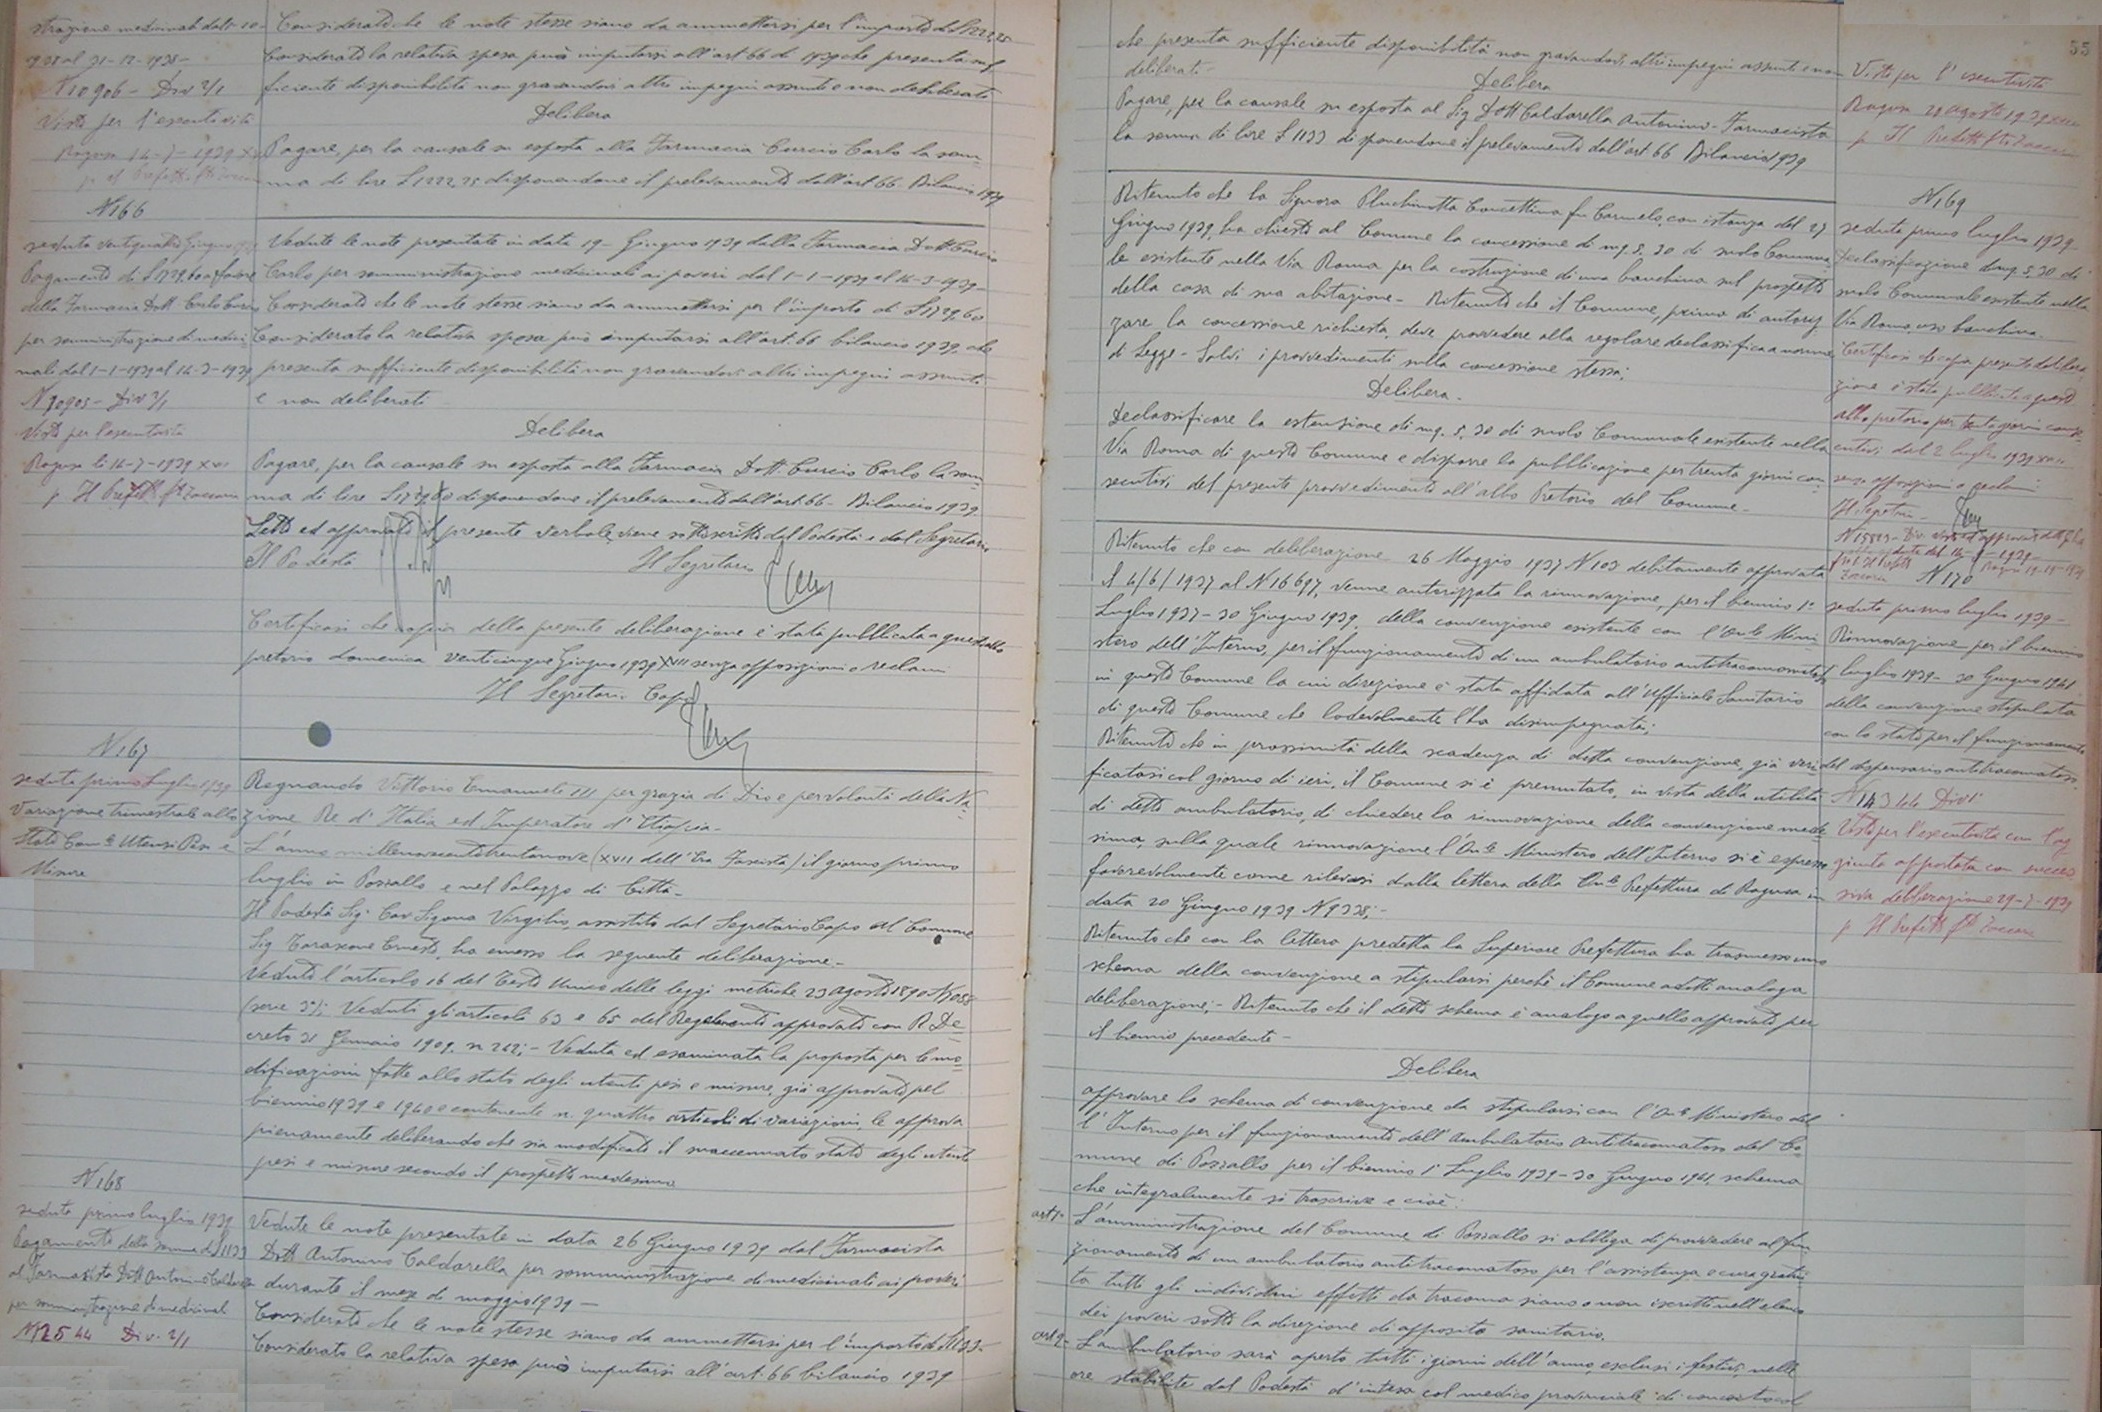 strazione medicinali dal 1-10-
938 al 31-12-1938-
N 10906 - Div 2/1
Visto per l'esecutività
Ragusa 14-7-1939 XVII
p. Il Prefetto
Considerato che le note stesse siano da ammettersi per l'importo di £1222,25
Considerato la relativa spesa può imputarsi all'art 66 di 1939 che presenta suf
ficiente disponibilità non gravandovi altri impegni assunti e non deliberati
Delibera
Pagare, per la causale su esposta alla Farmacia Curcio Carlo la som
ma di lire £1222,25 disponendone il prelevamento dall'art 66. Bilancio 1939
N 166
seduta ventiquattro Giugno
Pagamento di £1729,60 a favore
della Farmacia Dott Carlo Curcio
per somministrazione di medici
nali dal 1-1-1939 al 14-3-1939
N 10905 - Div 2/1
Visto per l'esecutività
Ragusa li 14-7-1939 XVII
p Il Prefetto
Vedute le note presentate in data 19- Giugno 1939 dalla Farmacia Dott Curcio
Carlo per somministrazione medicinali ai poveri dal 1-1-1939 al 14-3-1939-
Considerato che le note stesse siano da ammettersi per l'importo di £1729,60
Considerato la relativa spesa può imputarsi all'art 66 bilancio 1939, che
presenta sufficiente disponibilità non gravandovi altri impegni assunti
e non deliberati
Delibera
Pagare, per la causale su esposta alla Farmacia Dott. Curcio Carlo la som
ma di lire £1729,60 disponendone il prelevamento dall'art 66- Bilancio 1939
Letto ed approvato il presente verbale viene sottoscritto dal Podestà e dal Segretario
Il Podestà Il Segretario
Certificasi che copia della presente deliberazione è stata pubblicata a quest'albo
pretorio domenica venticinque Giugno 1939 XVII senza opposizioni o reclami
Il Segretario Capo
N 167
seduta primo luglio 1939
Variazione trimestrale allo
Stato Com.le Utensi Pesi e
Misure
Regnando Vittorio Emanuele III per grazia di Dio e per volontà della Na
zione Re d'Italia ed Imperatore d'Etiopia-
L'anno millenovecentotrentanove (XVII dell'Era Fascista) il giorno primo
luglio in Pozzallo e nel Palazzo di Città-
Il Podestà Sig. Cav Sigona Virgilio, assistito dal Segretario Capo del Comune
Sig Tarascone Ernesto, ha emesso la seguente deliberazione-
Veduto l'articolo 16 del Testo Unico delle leggi metriche 23 agosto 1890 N 7088
(serie 3ª); Veduti gli articoli 63 e 65 del Regolamento approvato con R. De
creto 31 Gennaio 1909. n 242;- Veduta ed esaminata la proposta per le mo
dificazioni fatte allo stato degli utenti pesi e misure, già approvato pel
biennio 1939 e 1940 e contenente n. quattro articoli di variazioni, le approva
pienamente deliberando che sia modificato il succennato stato degli utenti
pesi e misure secondo il prospetto medesimo
N 168
seduta primo luglio 1939
Pagamento della somma di £1133
al Farmacista Dott Antonino Caldarella
per somministrazione di medicinal
N 12544 Div. 2/1
Vedute le note presentate in data 26 Giugno 1939 dal Farmacista
Dott Antonino Caldarella per somministrazione di medicinali ai poveri
durante il mese di maggio 1939 -
Considerato che le note stesse siano da ammettersi per l'importo di £1133-
Considerato la relativa spesa può imputarsi all'art. 66 bilancio 1939
55
che presenta sufficiente disponibilità non gravandovi altri impegni assunti e non
deliberati-
Delibera
Pagare, per la causale su esposta al Sig Dott Caldarella Antonino- Farmacista
la somma di lire £ 1133 disponendone il prelevamento dall'art 66 Bilancio 1939
Visto per l'esecutività
Ragusa 28 agosto 1939 XVII
p Il Prefetto
Ritenuto che la Signora Pluchinotta Concettina fu Carmelo, con istanza del 27
Giugno 1939, ha chiesto al Comune la concessione di mq. 5,30 di suolo Comuna
le esistente nella Via Roma per la costruzione di una banchina sul prospetto
della casa di sua abitazione- Ritenuto che il Comune, prima di autoriz
zare la concessione richiesta, deve provvedere alla regolare declassifica a norma
di Legge- Salvi i provvedimenti sulla concessione stessa;
Delibera-
Declassificare la estensione di mq. 5,30 di suolo Comunale esistente nella
Via Roma di questo Comune e disporre la pubblicazione per trenta giorni con
secutivi del presente provvedimento all'albo Pretorio del Comune-
N 169
seduta primo luglio 1939
Declassificazione di mq. 5,30 di
suolo Comunale esistente nella
Via Roma, uso banchina.
Certificasi che copia presente delibera
zione è stata pubblicata a questo
albo pretorio per trenta giorni conse
cutivi dal 2 luglio 1939 XVII
senza opposizioni o reclami
Il Segretario
Ritenuto che con deliberazione 26 Maggio 1937 N 103 debitamente approvata
il 4/6/1937 al N 16697, venne autorizzata la rinnovazione, per il biennio 1°
Luglio 1937-30 Giugno 1939, della convenzione esistente con l'On.le Mini
stero dell'Interno, per il funzionamento di un ambulatorio antitracomatoso
in questo Comune la cui direzione è stata affidata all'Ufficiale Sanitario
di questo Comune che lodevolmente l'ha disimpegnata;
Ritenuto che in prossimità della scadenza di detta convenzione, già veri
ficatasi col giorno di ieri, il Comune si è premurato, in vista della utilità
di detto ambulatorio, di chiedere la rinnovazione della convenzione mede
sima, sulla quale rinnovazione l'On.le Ministero dell'Interno si è espresso
favorevolmente come rilevasi dalla lettera della On.le Prefettura di Ragusa in
data 20 Giugno 1939 N 9338;-
Ritenuto che con la lettera predetta la Superiore Prefettura ha trasmesso uno
schema della convenzione a stipularsi perchè il Comune adotti analoga
deliberazione;- Ritenuto che il detto schema è analogo a quello approvato per
il biennio precedente-
Delibera
approvare lo schema di convenzione da stipularsi con l'On.le Ministero del
l'Interno per il funzionamento dell'Ambulatorio Antitracomatoso del Co
mune di Pozzallo per il biennio 1° Luglio 1939-30 Giugno 1941, schema
che integralmente si trascrive e cioè:
art 1- L'amministrazione del Comune di Pozzallo si obbliga di provvedere al fun
zionamento di un ambulatorio antitracomatoso per l'assistenza e cura gratui
ta tutti gli individui affetti da tracoma siano o non iscritti nell'elenco
dei poveri sotto la direzione di apposito sanitario.
art 2- L'ambulatorio sarà aperto tutti i giorni dell'anno, esclusi i festivi, nelle
ore stabilite dal Podestà d'intesa col medico provinciale di concerto col
N 170
seduta primo luglio 1939-
Rinnovazione per il biennio
luglio 1939- 30 Giugno 1941
della convenzione stipulata
con lo stato per il funzionamento
del dispensario antitracomatoso.
Visto per l'esecutività con l'ag
giunta apportata con succes
siva deliberazione 29-7-1939
p Il Prefetto